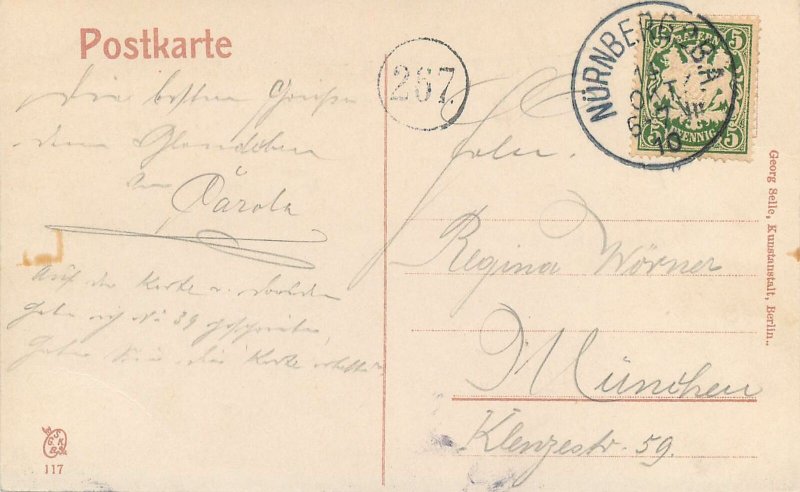 Postkarte
Die besten Grüße
dem Blondchen
Carola
Auf der Karte v.
habe ich No 39 geschrieben,
haben Sie die Karte erhalten
G S K B
117
267.
NÜRNBERG 2 B.A.
10
BAYERN
5 5
5 PFENNIG 5
Frln.
Regina Wörner
München
Klenzestr. 59.
Georg Selle, Kunstanstalt, Berlin.